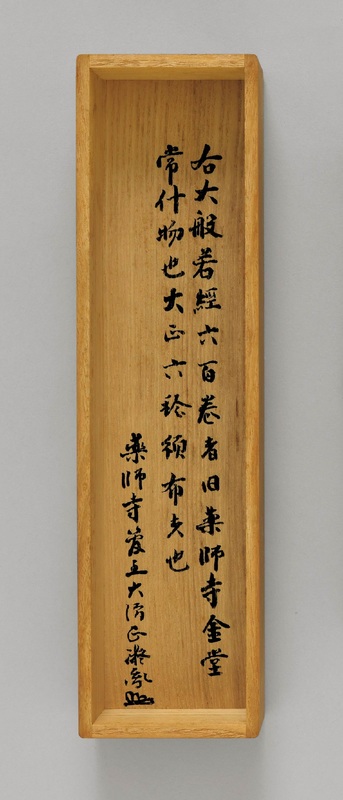 右大般若經六百卷者旧藥師寺金堂
常什物也大正六稔頒布之也
藥師寺管主大僧正凝胤